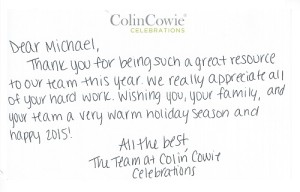 ColinCowie
CELEBRATIONS
Dear Michael,
Thank you for being such a great resource
to our team this year. We really appreciate all
of your hard work. Wishing you, your family, and
your team a very warm holiday season and
happy 2015!
All the best,
The Team at Colin Cowie
Celebrations